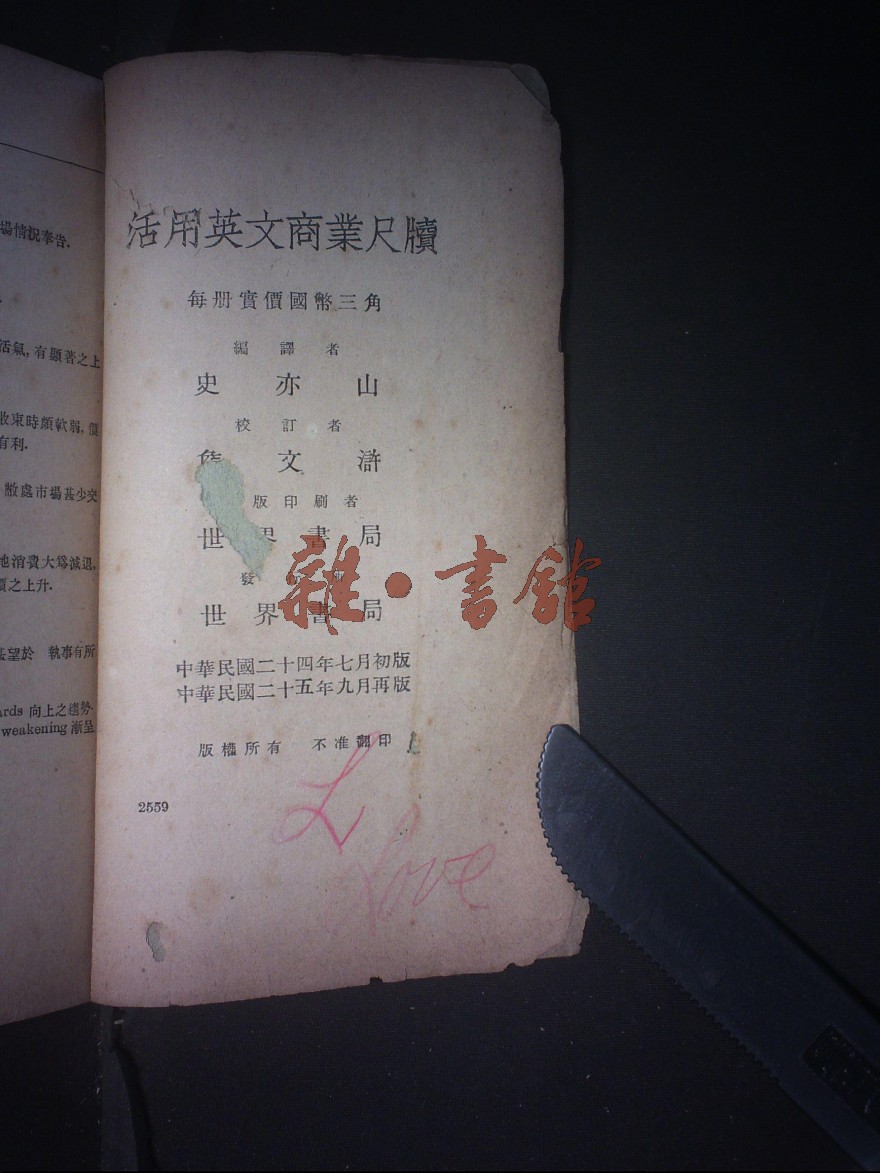 場情況奉告.
活氣, 有顯著之上
收束時頗軟弱, 價
有利.
敝處市場甚少交
地消費大爲減退,
價之上升.
甚望於 執事有所
ards 向上之趨勢.
weakening 漸呈
活用英文商業尺牘
每册實價國幣三角
編譯者
史亦山
校訂者
詹文滸
版印刷者
世界書局
發
世界書局
中華民國二十四年七月初版
中華民國二十五年九月再版
版權所有 不准翻印
2559
L
Love
雜·書館